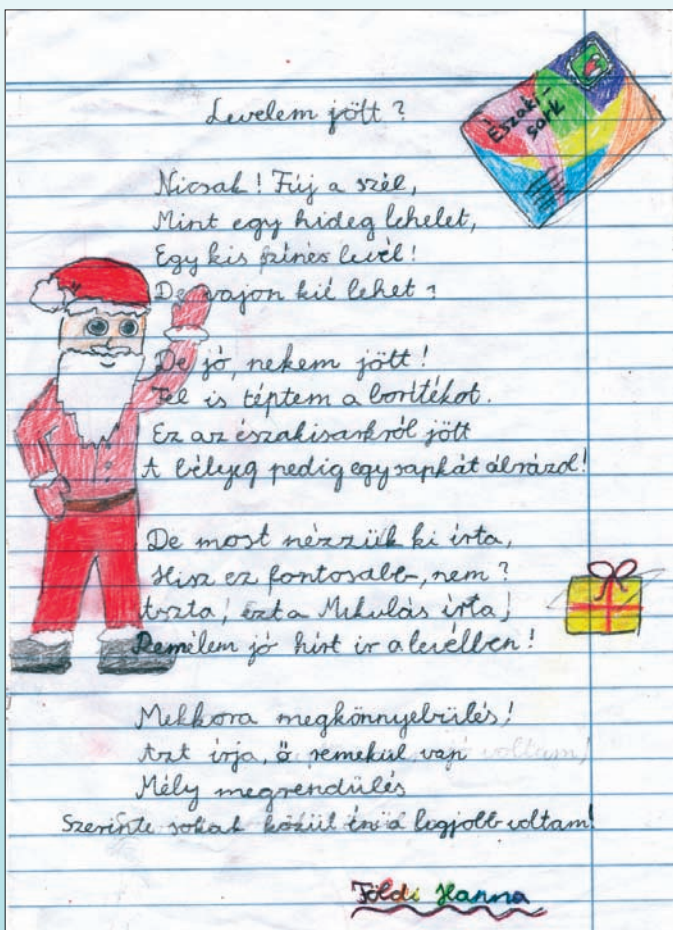 Levelem jött?
Északi-
sark
Nicsak! Fúj a szél,
Mint egy hideg lehelet,
Egy kis színes levél!
De vajon kié lehet?
De jó, nekem jött!
Fel is téptem a borítékot.
Ez az északisarkról jött
A bélyeg pedig egy sapkát ábrázol!
De most nézzük ki írta,
Hisz ez fontosabb, nem?
Azta! ezt a Mikulás írta!
Remélem jó hírt ír a levélben!
Mekkora megkönnyebbülés!
Azt írja, ő remekül van
Mély megrendülés
Szerinte sokak közül én a legjobb voltam!
Földi Hanna